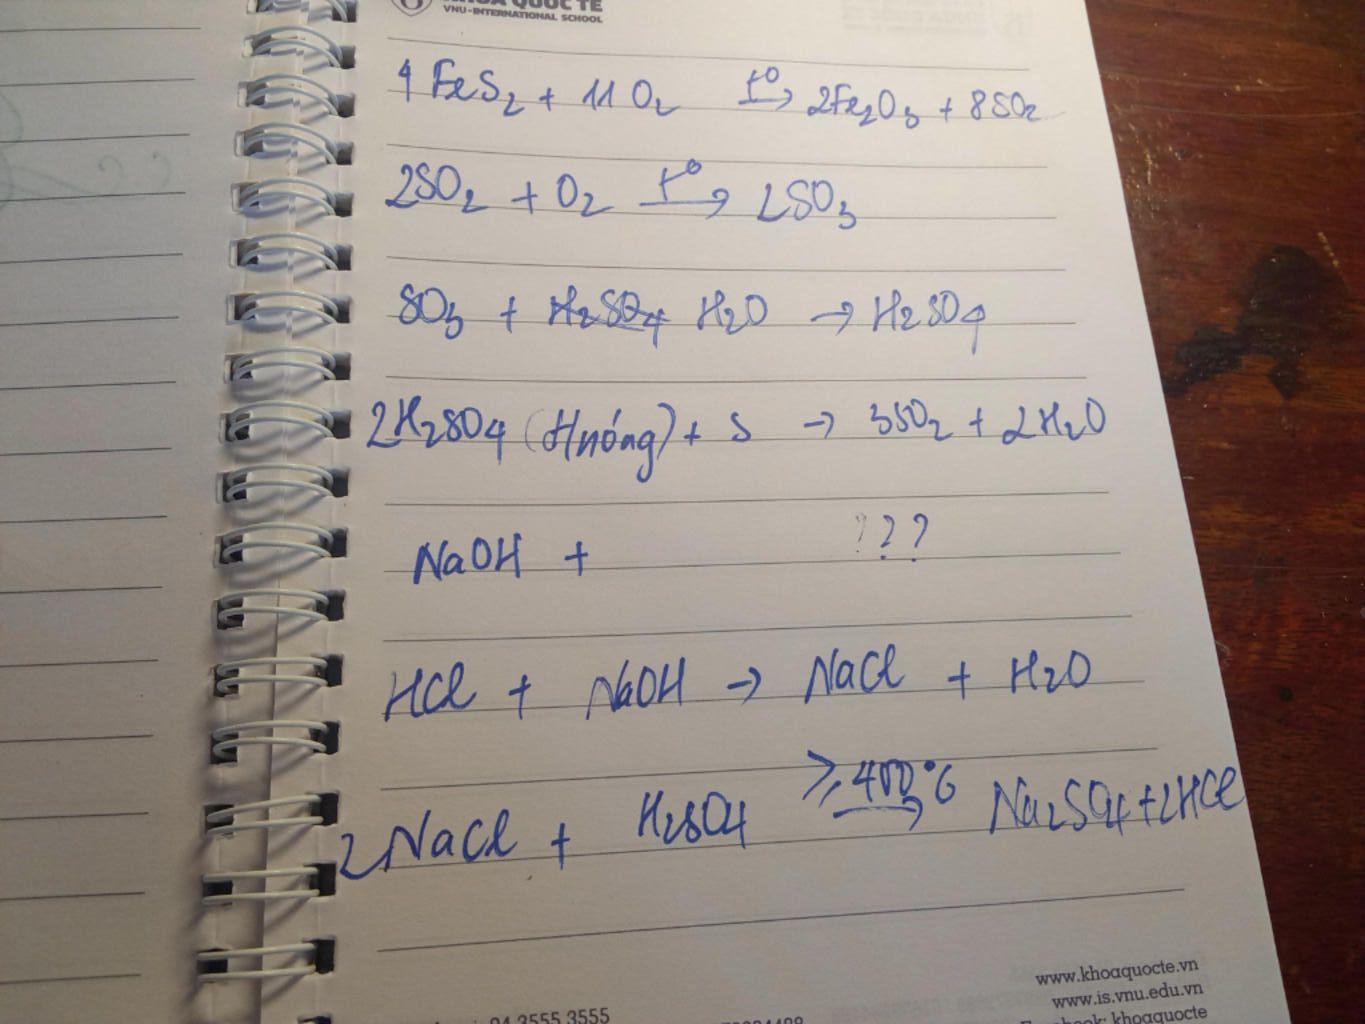 KHOA QUỐC TẾ
VNU-INTERNATIONAL SCHOOL
4 FeS2 + 11 O2 t° → 2Fe2O3 + 8SO2
2SO2 + O2 t° → 2SO3
SO3 + H2SO4 H2O → H2SO4
2H2SO4 (Hnóng) + S → 3SO2 + 2H2O
NaOH + ???
HCl + NaOH → NaCl + H2O
2NaCl + H2SO4 ≥400°C → Na2SO4+2HCl
www.khoaquocte.vn
www.is.vnu.edu.vn
04 3555 3555
Facebook: khoaquocte